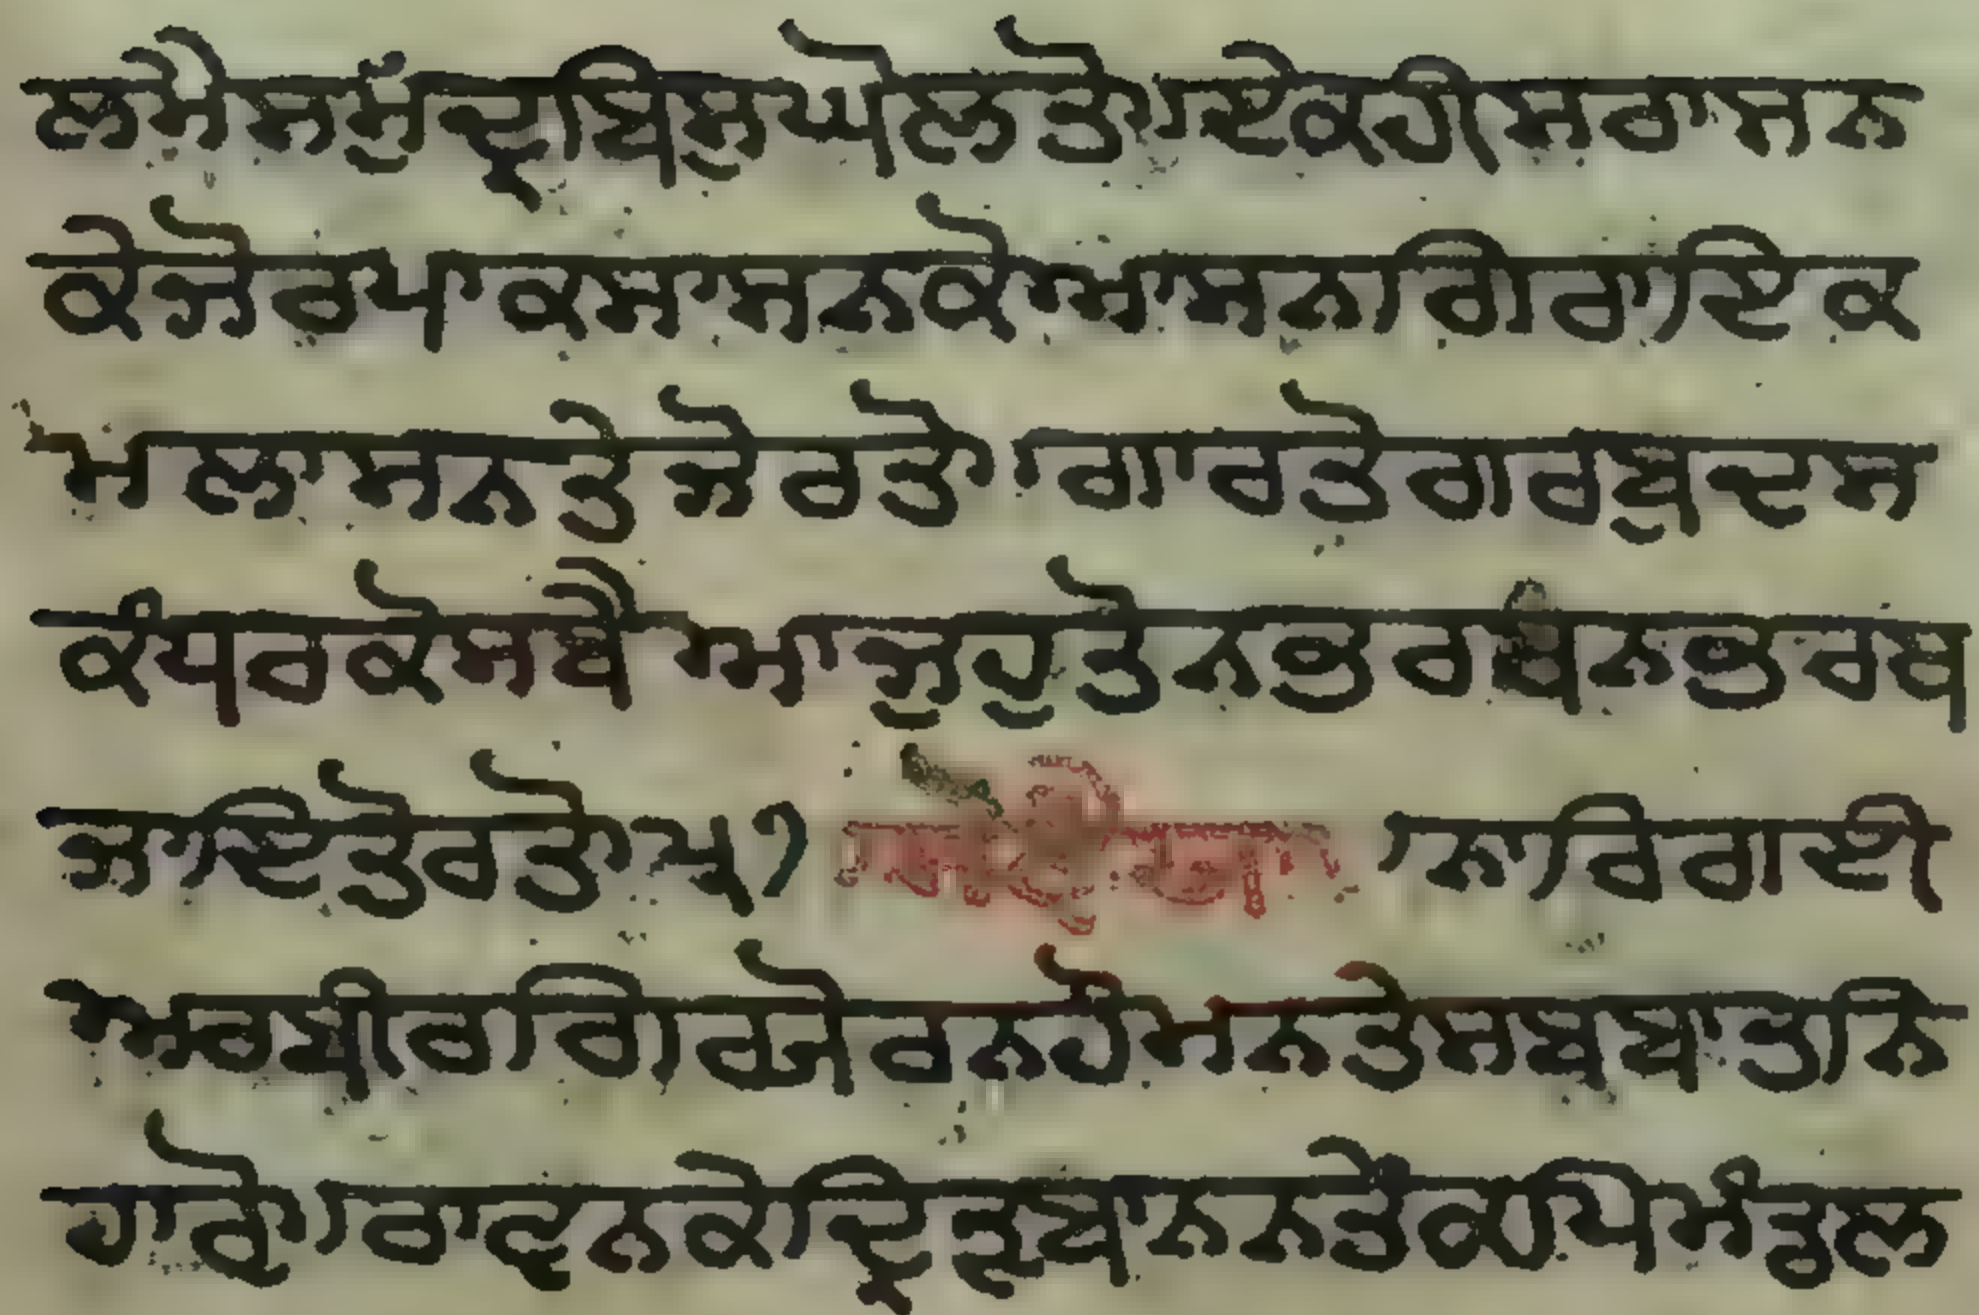 ਲਮੈਸਮੁੱਦ੍ਰਬਿਸੁਘੋਲਤੋ।ਏਕਹੀਸਰਾਸਨ
ਕੇਜੋਰਪਾਕਸਾਸਨਕੋਆਸਨਗਿਰਾਇਕ
ਮਲਾਸਨਤੇਜੋਰਤੋ।ਗਾਰਤੋਗਰਬੁਦਸ
ਕੰਧਰਕੋਸਬੈਆਜੁਹੁਤੋਨਭਰਬੰਨਭਰਥ
ਜਾਇਤੋਰਤੋ।੫੧ ਨਾਰਿਗਈ
ਅਰਬੀਰਗਿਰਯੋਰਨਹੋਮਨਤੇਸਬਬਾਤਨਿ
ਹਾਰੋ।ਰਾਵਨਕੇਦ੍ਰਿੜਬਾਨਨਤੇਂਕਪਿਮੰਡਲ